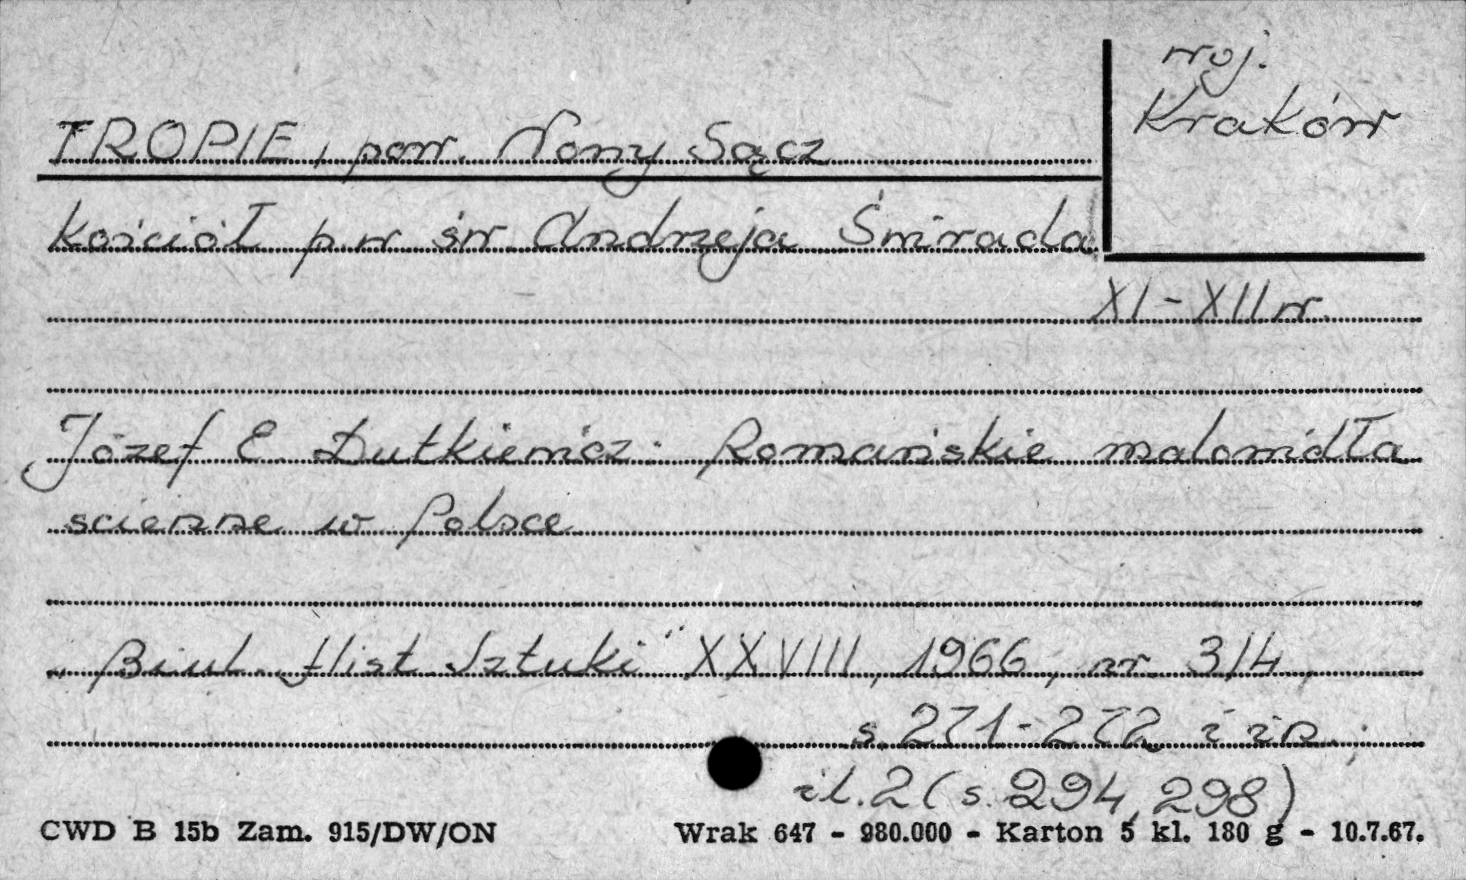 woj.
Kraków
TROPIE, pow. Nowy Sącz
kościół p w św. Andrzeja Świrada
XI-XII w.
Józef E. Dutkiewicz: Romańskie malowidła
scienne w Polsce
„Biul. Hist Sztuki" XXVIII, 1966, nr 3/4,
s. 271-272 i in.;
il. 2 (s. 294, 298)
CWD B 15b Zam. 915/DW/ON
Wrak 647 - 980.000 - Karton 5 kl. 180 g - 10.7.67.